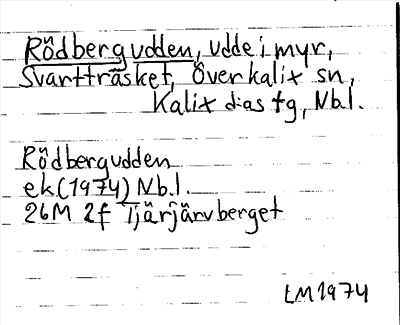 Rödbergudden, udde i myr,
Svartträsket, Överkalix sn,
Kalix d:as tg, Nb.l.
Rödbergudden
ek (1974) Nb.l.
26M 2f Tjärjärvberget
LM 1974